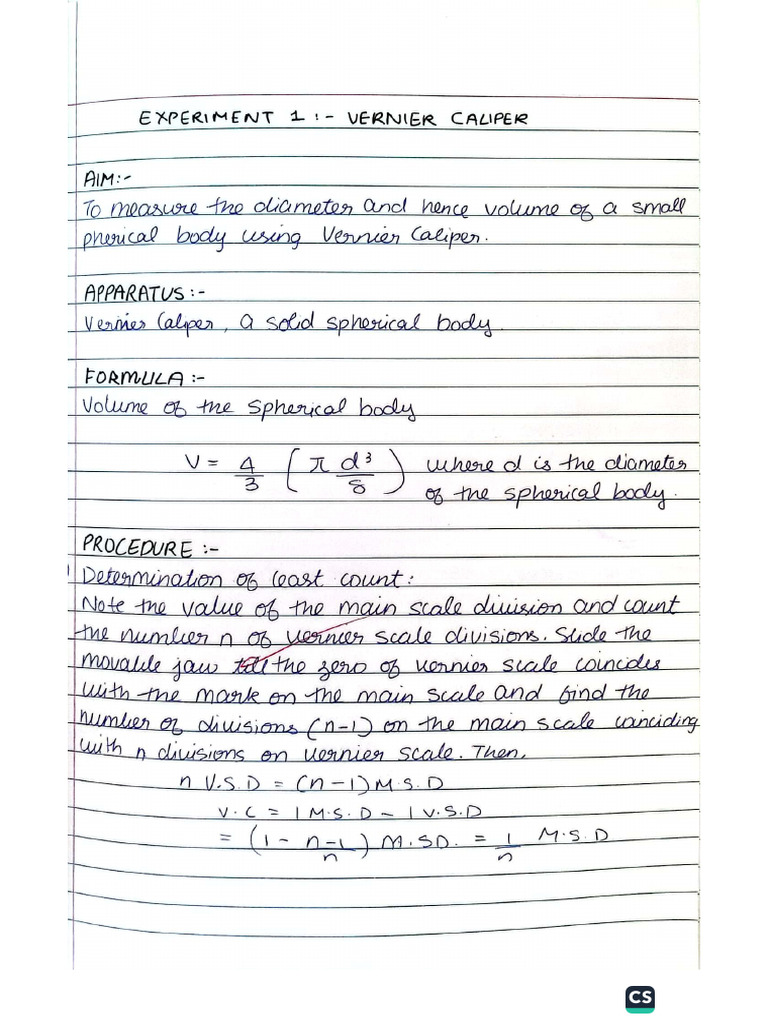 EXPERIMENT 1 :- VERNIER CALIPER
AIM:-
To measure the diameter and hence volume of a small
pherical body using Vernier Caliper.
APPARATUS :-
Vernier Caliper, a solid spherical body.
FORMULA :-
Volume of the spherical body
V = 4/3 (π d³/8) where d is the diameter
of the spherical body.
PROCEDURE :-
Determination of least count:
Note the value of the main scale division and count
the number n of vernier scale divisions. Slide the
movable jaw till the zero of vernier scale coincides
with the mark on the main scale and find the
number of divisions (n-1) on the main scale coinciding
with n divisions on vernier scale. Then,
n V.S.D = (n-1) M.S.D
V.C = 1 M.S.D - 1 V.S.D
= (1 - n-1/n) M.SD. = 1/n M.S.D
CS